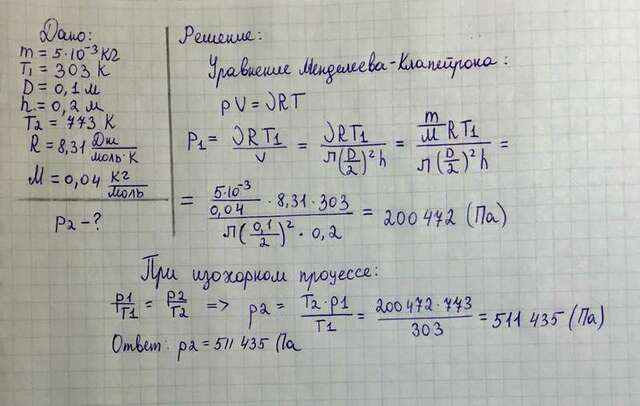 Дано:
m = 5·10⁻³ кг
T₁ = 303 K
D = 0,1 м
h = 0,2 м
T₂ = 773 K
R = 8,31 Дж/моль·К
M = 0,04 кг/моль
p₂ - ?
Решение:
Уравнение Менделеева-Клапейрона:
pV = νRT
P₁ = νRT₁/V = νRT₁/(π(D/2)²h) = (m/M RT₁)/(π(D/2)²h) =
= (5·10⁻³/0,04 · 8,31 · 303)/(π(0,1/2)² · 0,2) = 200 472 (Па)
При изохорном процессе:
p1/T1 = p2/T2 => p2 = T2·p1/T1 = 200 472·773/303 = 511 435 (Па)
Ответ: p2 = 511 435 Па